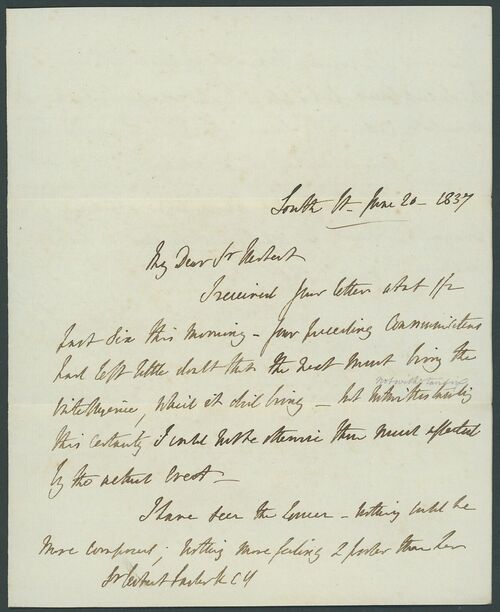 South St. June 20 - 1837
My Dear Sr Herbert
I received your letter about 1/2
past Six this morning - your preceding communications
had left little doubt that the next must bring the
intelligence, which it did bring - but notwithstanding
notwithstanding
this certainty I could not be otherwise than much affected
by the actual event -
I have seen the Queen - nothing could be
more composed; nothing more feeling & proper than her
Sr Herbert Taylor KCH